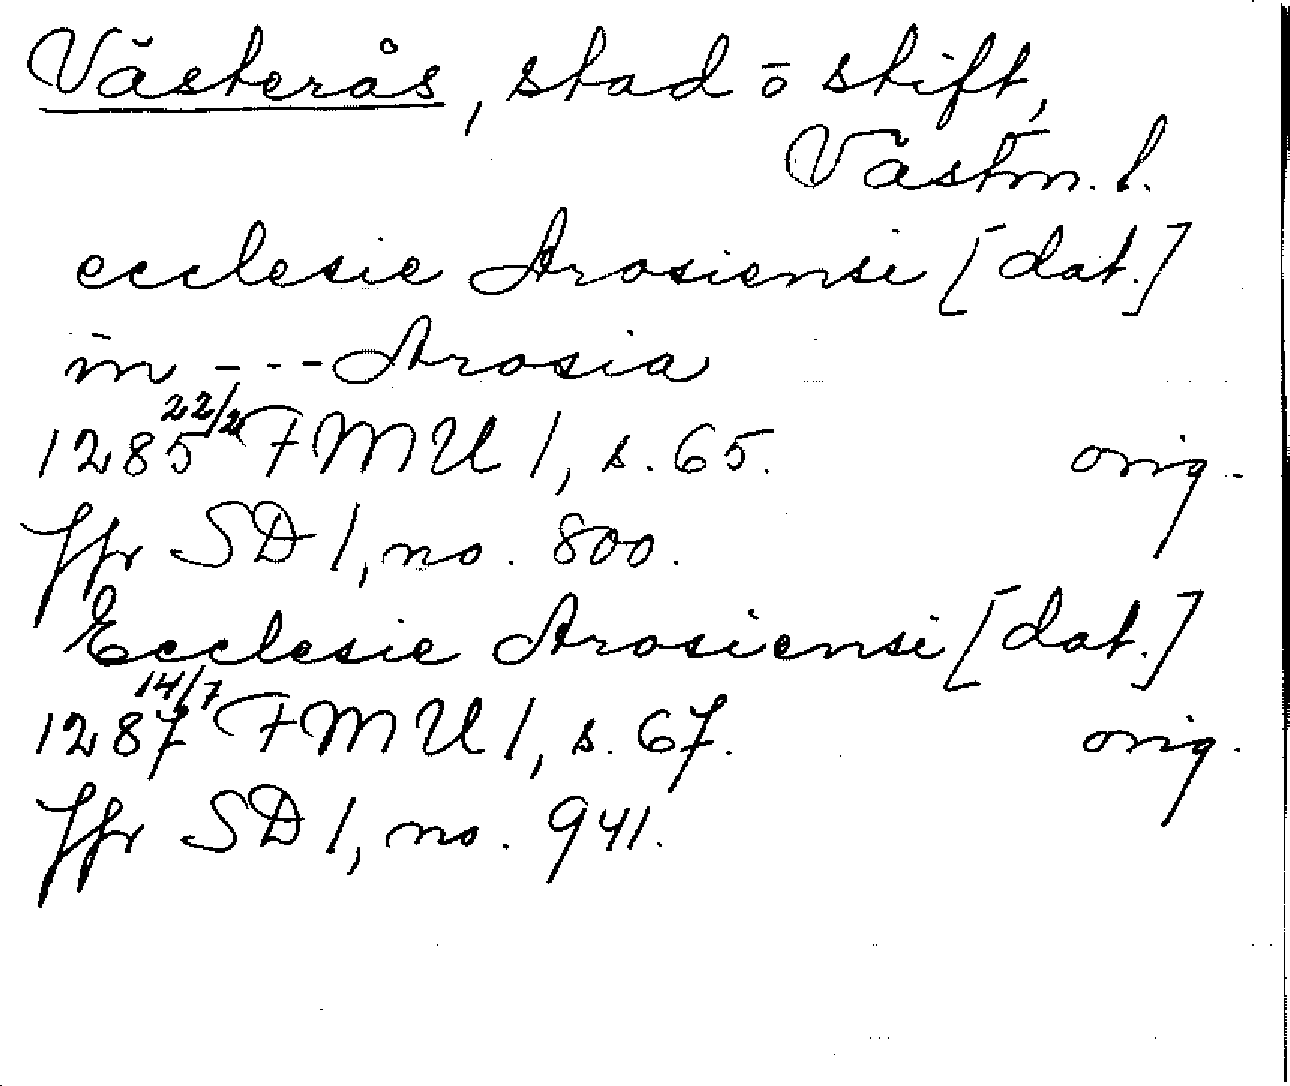 Västerås, stad o stift,
Västm. l.
ecclesie Arosiensi [dat.]
in - - - Arosia
1285 22/2 FMU 1, s. 65. orig.
Jfr SD 1, no. 800.
Ecclesie Arosiensi [dat.]
1287 14/7 FMU 1, s. 67. orig.
Jfr SD 1, no. 941.